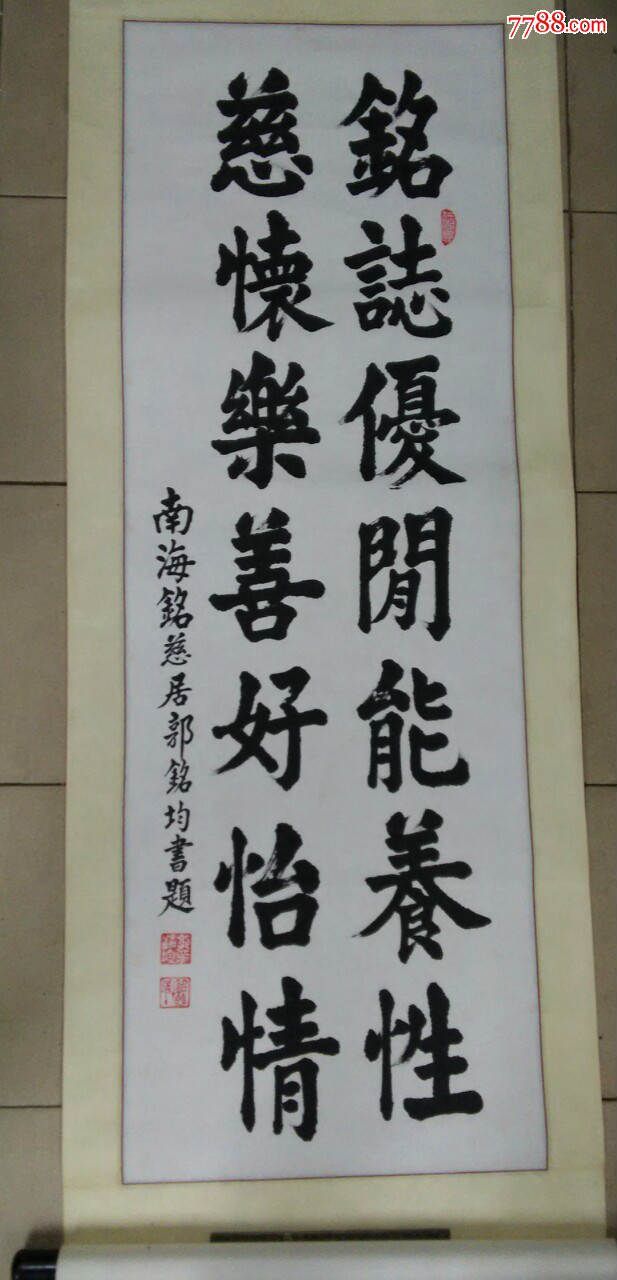 7788.com
銘誌優閒能養性
慈懷樂善好怡情
南海銘慈居郭銘均書題